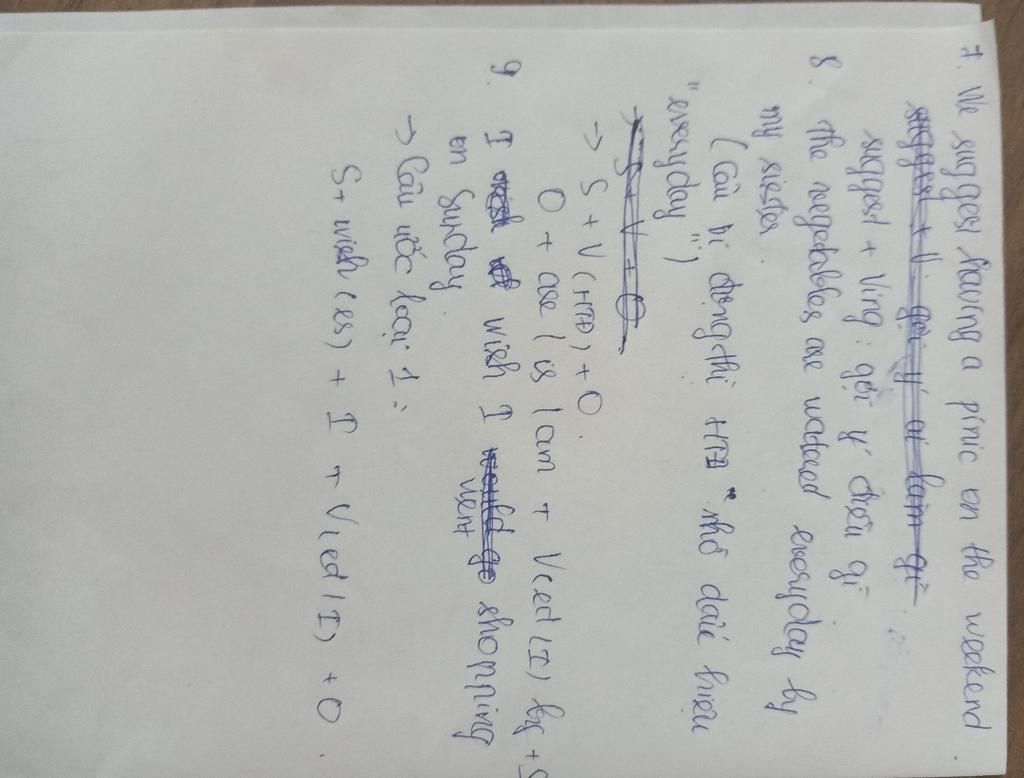 7. We suggest having a pinic on the weekend.
suggest + V: gợi ý ai làm gì
suggest + Ving: gợi ý điều gì
8. The vegetables are watered everyday by
my sister.
(Câu bị động thì HTĐ nhờ dấu hiệu
"everyday")
→ S + V + O
→ S + V(HTĐ) + O.
O + are / is / am + V(ed/I) by + S
9. I wish I went shopping
on Sunday
→ Câu ước loại 1:
S + wish(es) + I + V(ed/I) + O.